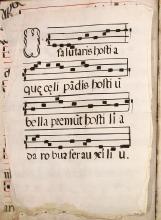 O salutaris hosti a
quę cęli pādis hosti ū
bella premūt hosti li a
da ro bur fer au xi li ū.